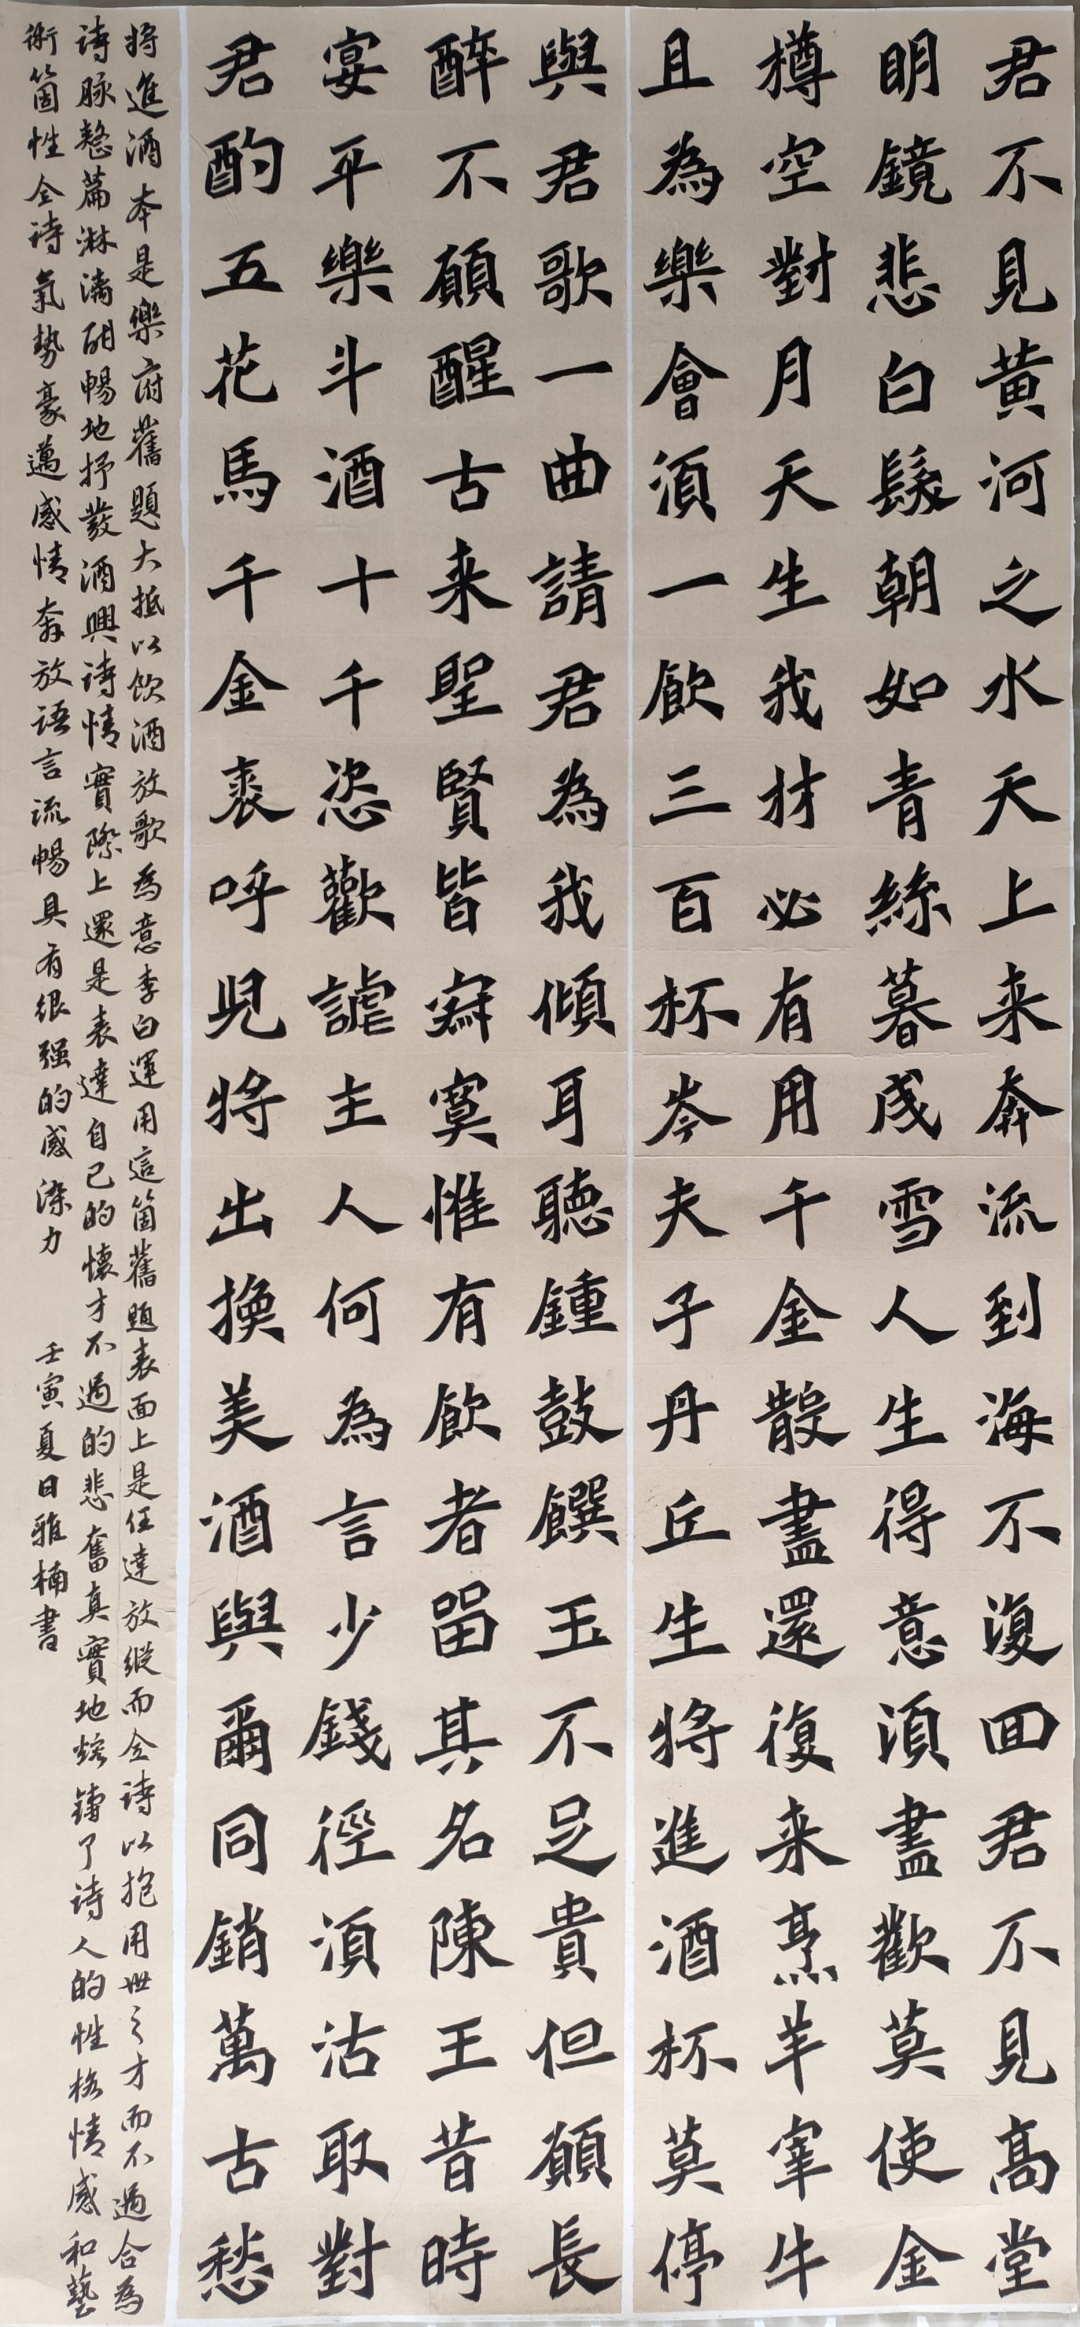 君不見黃河之水天上来奔流到海不復回君不見高堂
明鏡悲白髮朝如青絲暮成雪人生得意須盡歡莫使金
樽空對月天生我材必有用千金散盡還復来烹羊宰牛
且為樂會須一飲三百杯岑夫子丹丘生將進酒杯莫停
與君歌一曲請君為我傾耳聽鍾鼓饌玉不足貴但願長
醉不願醒古来聖賢皆寂寞惟有飲者留其名陳王昔時
宴平樂斗酒十千恣歡謔主人何為言少錢徑須沽取對
君酌五花馬千金裘呼兒將出換美酒與爾同銷萬古愁
將進酒本是樂府舊題大抵以飲酒放歌為意李白運用這箇舊題表面上是任達放縱而全詩以抱用世之才而不過合為
詩脉整篇淋漓酣暢地抒發酒興詩情實際上還是表達自己的懷才不過的悲奮真實地熔鑄了詩人的性格情感和藝
術箇性全詩氣勢豪邁感情奔放語言流暢具有很强的感染力
壬寅夏日雅楠書